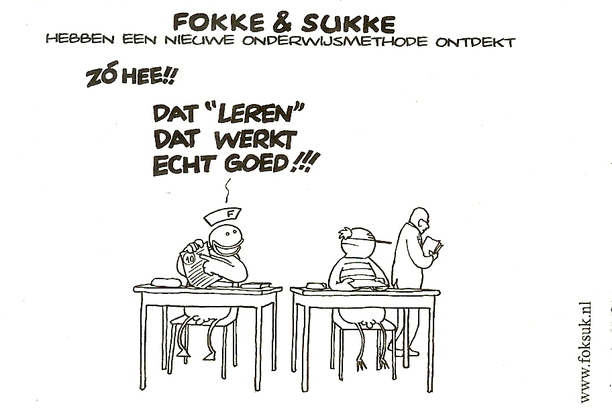 FOKKE & SUKKE
HEBBEN EEN NIEUWE ONDERWIJSMETHODE ONTDEKT
ZÓ HEE!!
DAT "LEREN"
DAT WERKT
ECHT GOED!!!
F
10
www.foksuk.nl